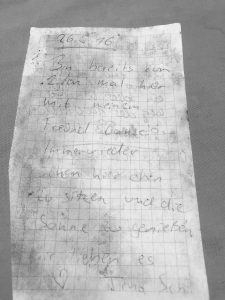 26.5.16
Bin bereits zum
2. ten mal hier
mit meinem
Freund
Immer wieder
schön hier oben
zu sitzen und die
Sonne zu genießen
wir lieben es
♡